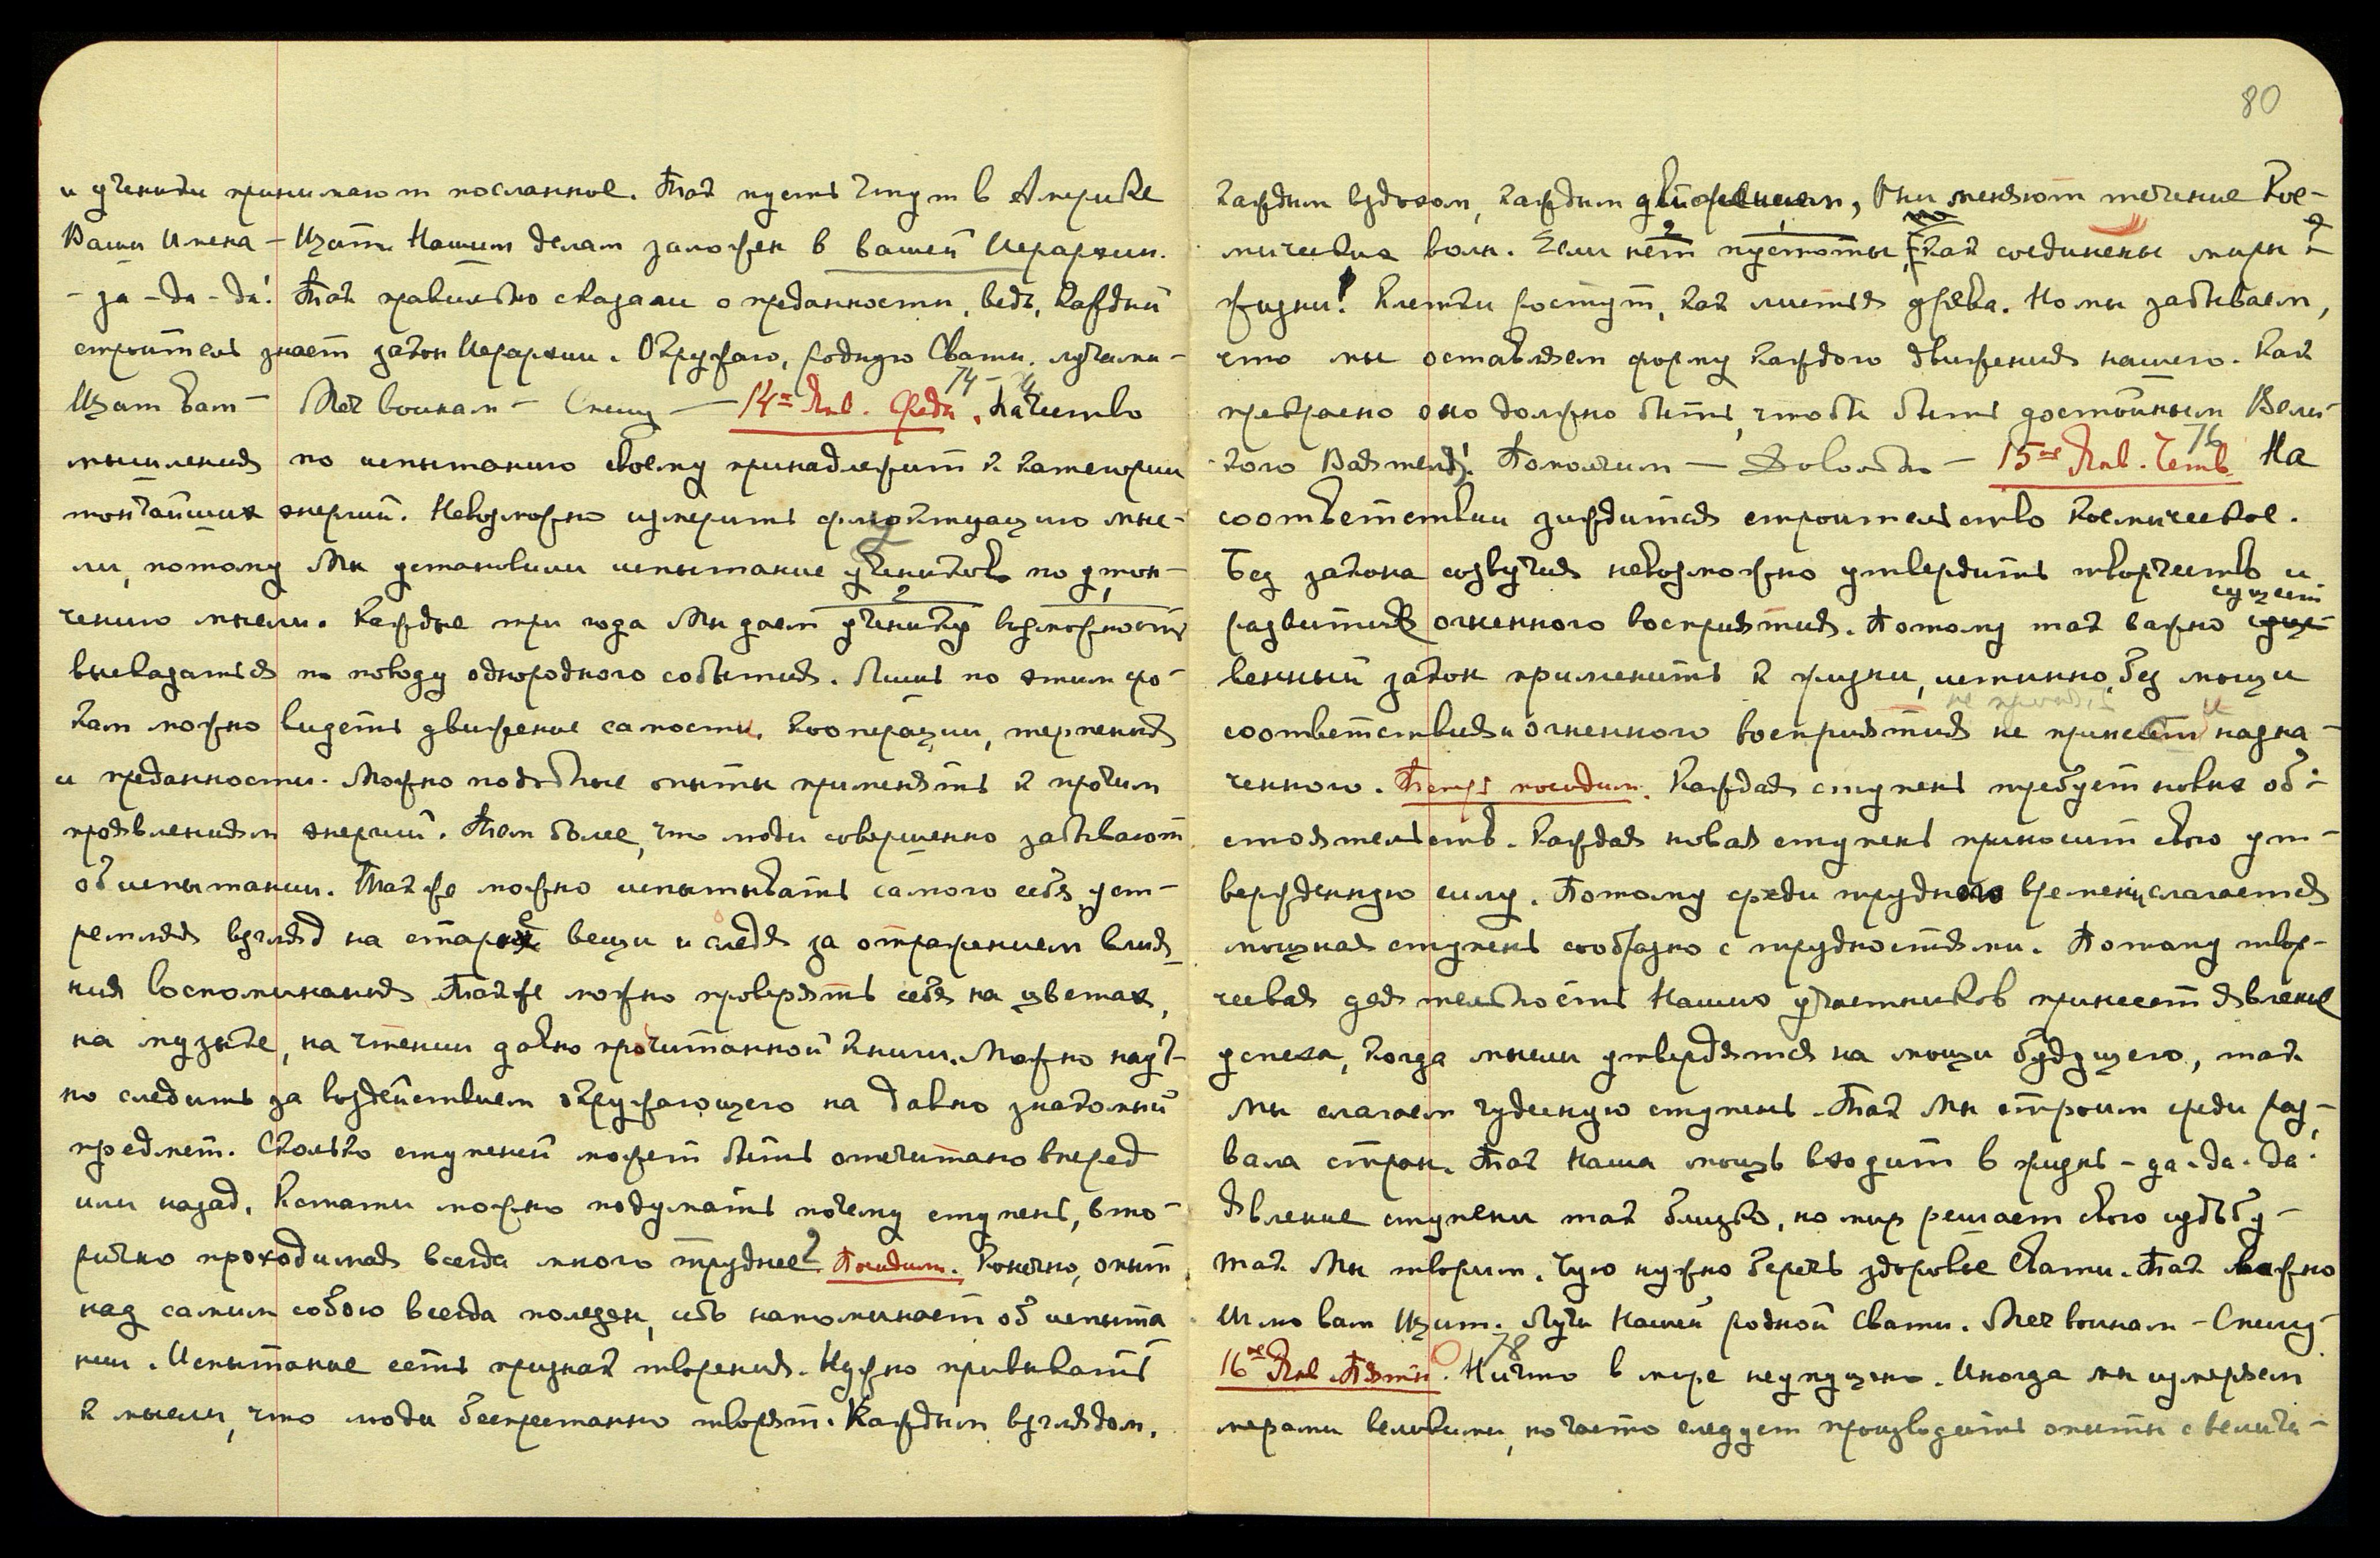 и ученики принимают посланное. Так пусть чтут в Америке
Ваши Имена — Щит Нашим делам заложен в вашей Иерархии.
— да – да – да! Так правильно сказали о преданности, ведь, каждый
строитель знает закон Иерархии. Окружаю, родную Свати, лучами —
Щит вам — Меч воинам — Спешу — 14ое Янв. Среда. 74 — Качество
мышления по испытанию своему принадлежит к категории
тончайших энергий. Невозможно измерить флюктуацию мыс-
ли, потому Мы установили испытание учеников по утон-
чению мысли. Каждые три года Мы даем ученику возможность
высказаться по поводу однородного события. Лишь по этим фо-
кам можно видеть движение самости, кооперации, терпения
и преданности. Можно подобные опыты применять к прочим
проявлениям энергий. Тем более, что люди совершенно забывают
об испытании. Также можно испытывать самого себя, уст-
ремляя взгляд на старые вещи и следя за отражением влия-
ния воспоминания. Также можно проверять себя на цветах,
на музыке, на чтении давно прочитанной книги. Можно науч-
но следить за воздействием окружающего на давно знакомый
предмет. Сколько ступеней может быть отсчитано вперед
или назад. Кстати можно подумать почему ступень, вто-
рично проходимая всегда много труднее? Посидим. Конечно, опыт
над самим собою всегда полезен, ибо напоминает об испыта
нии. Испытание есть признак творения. Нужно привыкать
к мысли, что люди беспрестанно творят. Каждым взглядом,
80
каждым вздохом, каждым движением, они меняют течение кос-
мических волн. Если нет пустоты, как соединены миры к
жизни! Клетки растут, как листья древа. Но мы забываем,
что мы оставляем форму каждого движения нашего. Как
прекрасно оно должно быть, чтобы быть достойным Вели-
кого Ваятеля! Помолчим — Довольно — 15ое Янв. Четв. 76 На
соответствии зиждится строительство космическое.
Без закона созвучия невозможно утвердить творчество и
развитие огненного восприятия. Потому так важно сущест
венный закон применить к жизни, истинно, без мощи
соответствия и огненного восприятия не принести назна-
ченного. Теперь посидим. Каждая ступень требует новых об-
стоятельств. Каждая новая ступень приносит свою ут-
вержденную силу. Потому среди трудного времени слагается
мощная ступень сообразно с трудностями. Потому твор-
ческая деятельность Наших участников принесет явление
успеха, когда мысли утвердятся на мощи будущего, так
Мы слагаем чудесную ступень. Так Мы строим среди раз-
вала стран. Так Наша мощь входит в жизнь – да – да – да!
Явление ступени так близко, но мир решает свою судьбу —
так Мы творим. Чую нужно беречь здоровье Свати. Так важно
Шлю вам Щит. Лучи Нашей родной Свати. Меч воинам — Спешу —
16ое Янв. Пятн. 78 Ничто в мире не упущено. Иногда мы измеряем
мерами великими, но часто следует производить опыты с величи-